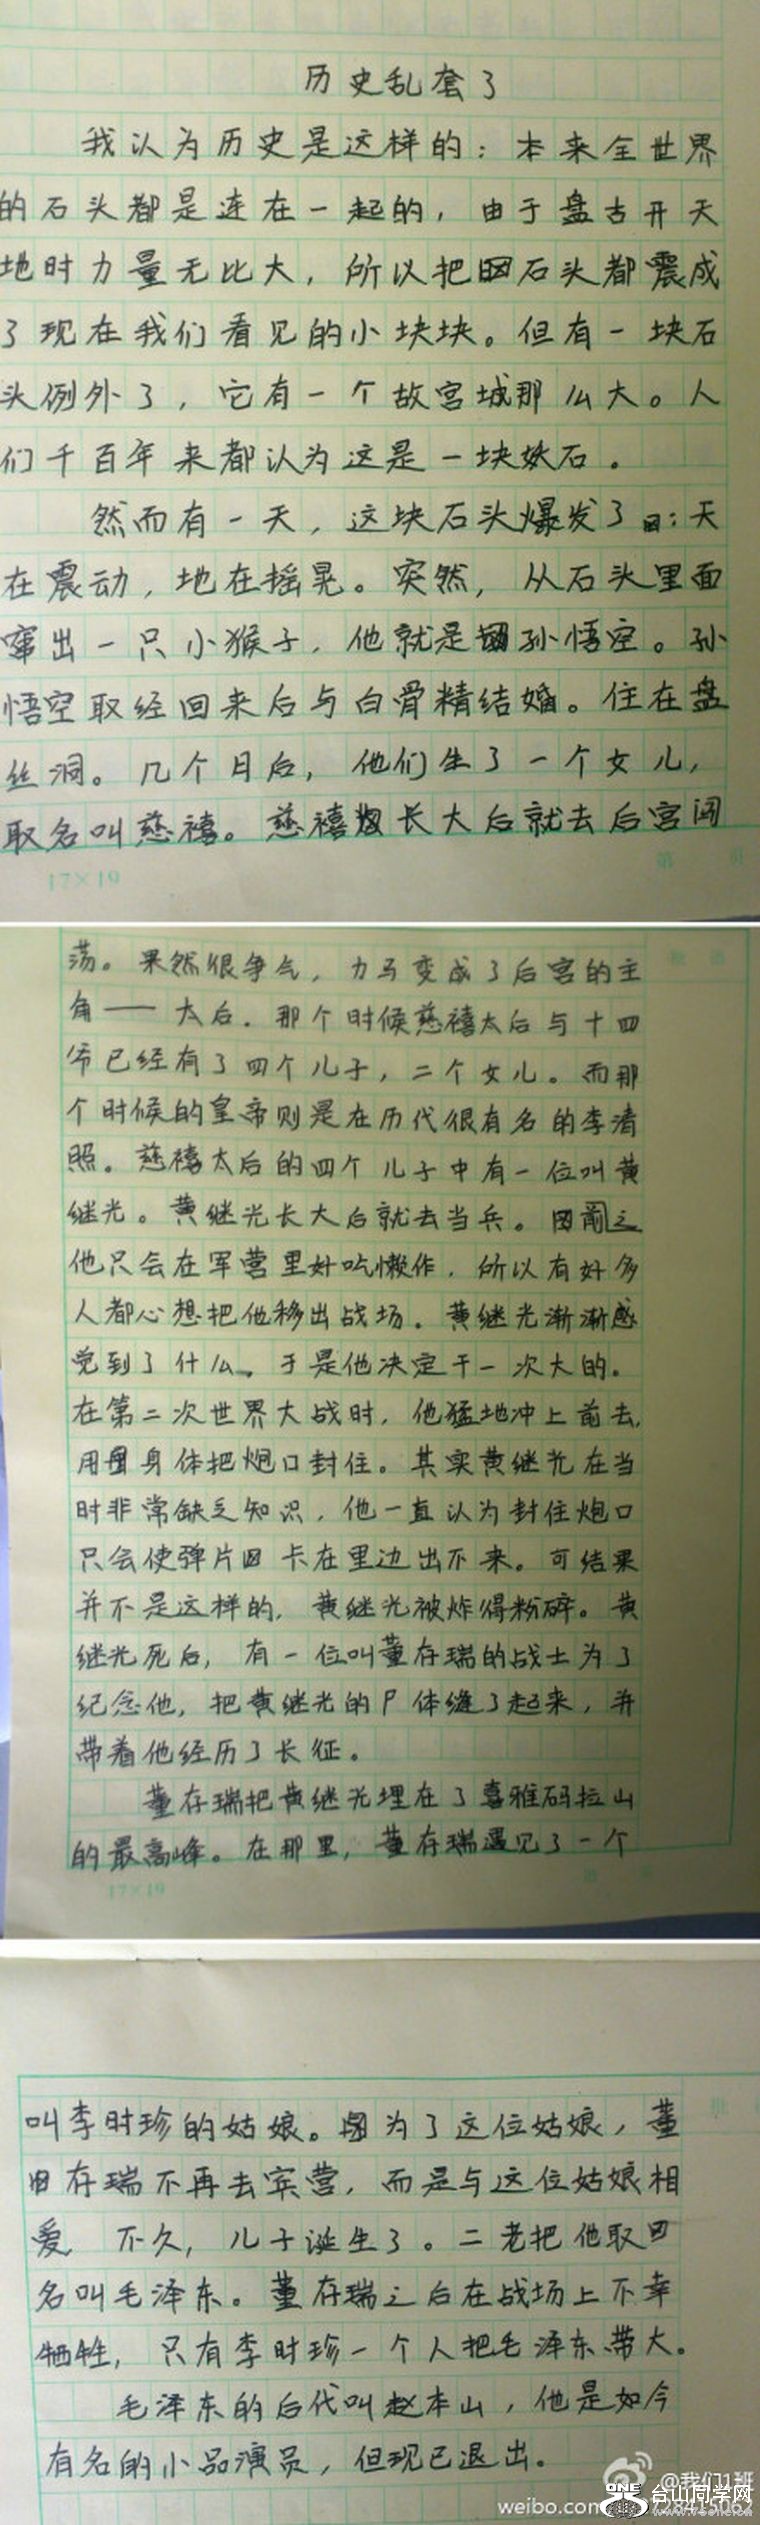 历史乱套了
我认为历史是这样的：本来全世界
的石头都是连在一起的，由于盘古开天
地时力量无比大，所以把石头都震成
了现在我们看见的小块块。但有一块石
头例外了，它有一个故宫城那么大。人
们千百年来都认为这是一块妖石。
然而有一天，这块石头爆发了：天
在震动，地在摇晃。突然，从石头里面
窜出一只小猴子，他就是孙悟空。孙
悟空取经回来后与白骨精结婚。住在盘
丝洞。几个月后，他们生了一个女儿，
取名叫慈禧。慈禧长大后就去后宫闯
17×19
荡。果然很争气，力马变成了后宫的主
角——太后。那个时候慈禧太后与十四
帝已经有了四个儿子，二个女儿。而那
个时候的皇帝则是在历代很有名的李清
照。慈禧太后的四个儿子中有一位叫黄
继光。黄继光长大后就去当兵。前之
他只会在军营里好吃懒作，所以有好多
人都心想把他移出战场。黄继光渐渐感
觉到了什么。于是他决定干一次大的。
在第二次世界大战时，他猛地冲上前去，
用身体把炮口封住。其实黄继光在当
时非常缺乏知识，他一直认为封住炮口
只会使弹片卡在里边出不来。可结果
并不是这样的，黄继光被炸得粉碎。黄
继光死后，有一位叫董存瑞的战士为了
纪念他，把黄继光的尸体缝了起来，并
带着他经历了长征。
董存瑞把黄继光埋在了喜雅码拉山
的最高峰。在那里，董存瑞遇见了一个
17×19
叫李时珍的姑娘。因为了这位姑娘，董
存瑞不再去宾营，而是与这位姑娘相
爱 不久，儿子诞生了。二老把他取
名叫毛泽东。董存瑞之后在战场上不幸
牺牲，只有李时珍一个人把毛泽东带大。
毛泽东的后代叫赵本山，他是如今
有名的小品演员，但现已退出。
@我们1班
ONE 台山同学网